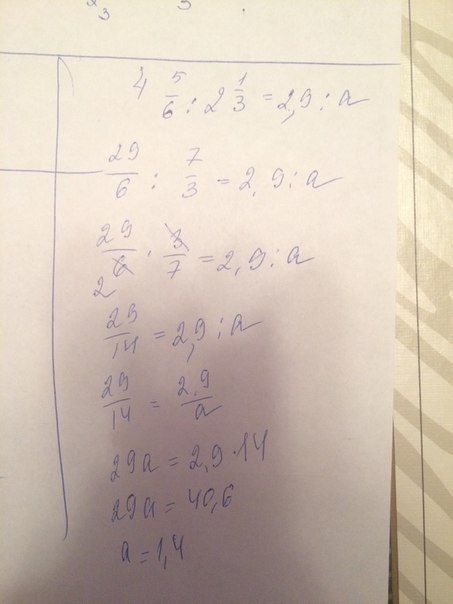 3
4 5/6 : 2 1/3 = 2,9 : a
29/6 : 7/3 = 2,9 : a
29/6 · 3/7 = 2,9 : a
2
29/14 = 2,9 : a
29/14 = 2,9/a
29a = 2,9 · 14
29a = 40,6
a = 1,4